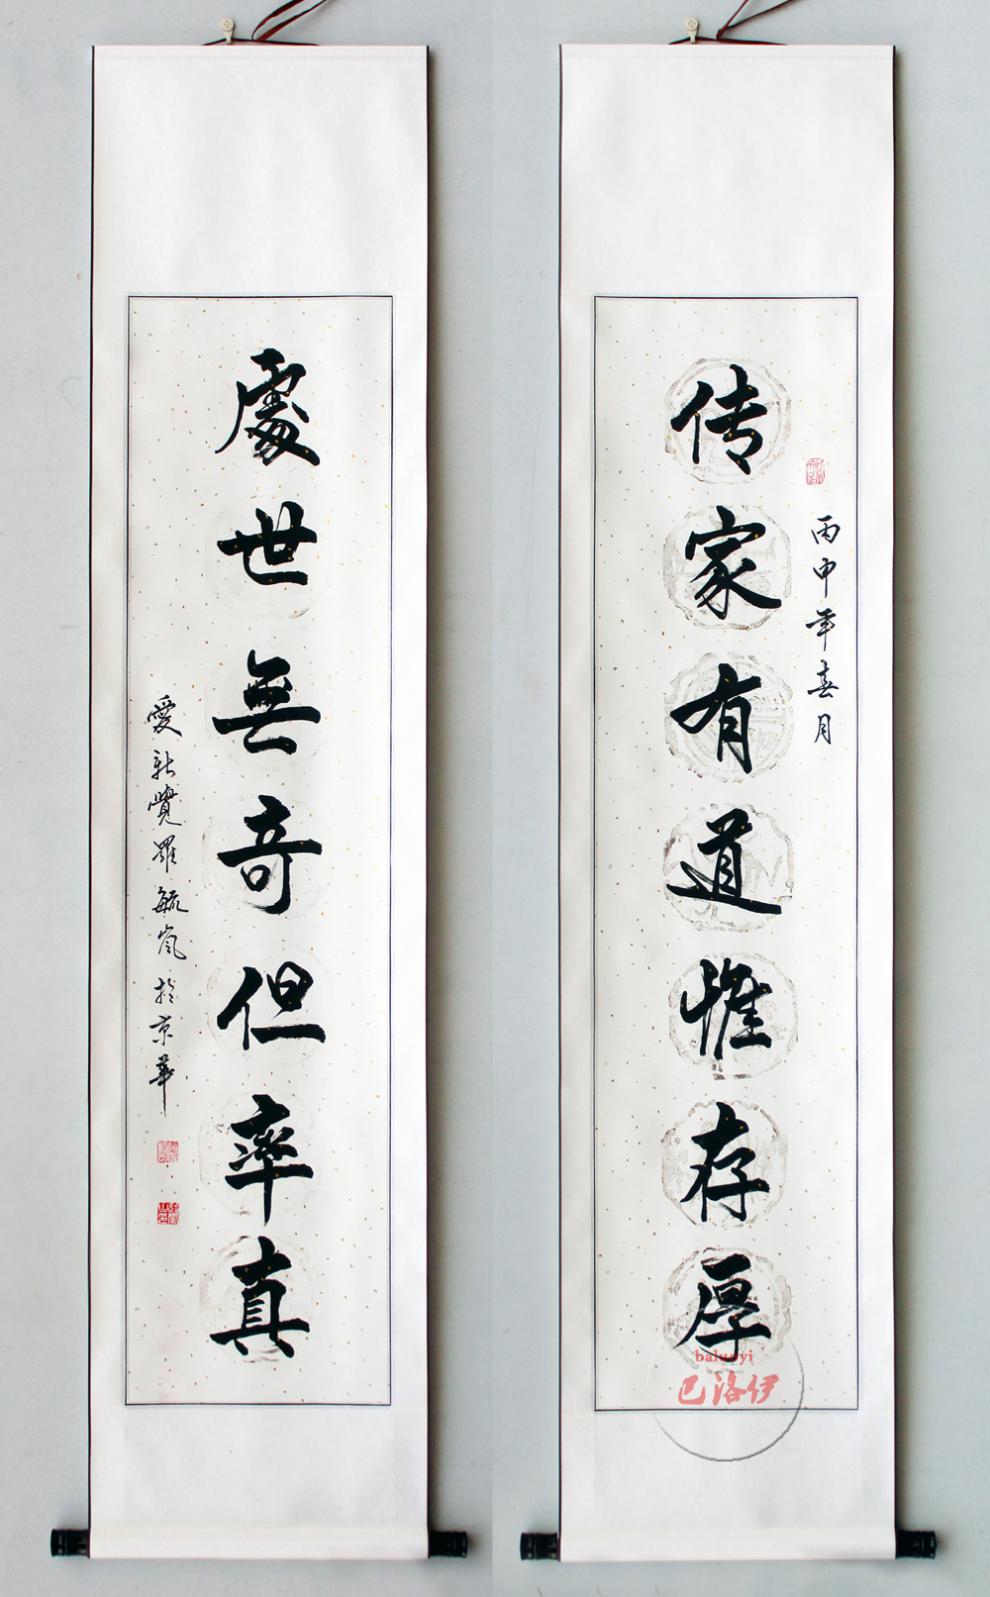 丙申年春月
传家有道惟存厚
處世無奇但率真
愛新覺羅毓嵐於京華
baluoyi
巴洛伊